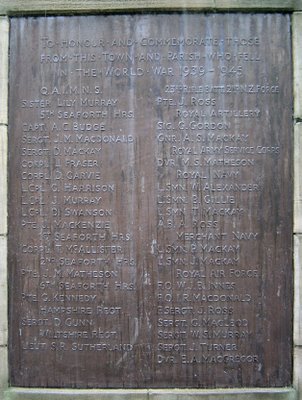 TO HONOUR AND COMMEMORATE THOSE
FROM THIS TOWN AND PARISH WHO FELL
IN THE WORLD WAR 1939-1945
Q.A.I.M.N.S.
SISTER LILY MURRAY
5TH SEAFORTH HRS.
CAPT. A.C. BUDGE
SERGT. J.M. MACDONALD
SERGT. J. MACKAY
CORPL. I. FRASER
CORPL. D. GARVIE
L.CPL. G. HARRISON
L.CPL. J. MURRAY
L.CPL. D. SWANSON
PTE. L. MACKENZIE
SEAFORTH HRS.
CORPL. T. MCALLISTER
2ND SEAFORTH HRS.
PTE. J.M. MATHESON
6TH SEAFORTH HRS.
PTE. G. KENNEDY
HAMPSHIRE REGT.
SERGT. D. GUNN
WILTSHIRE REGT.
LIEUT. S.R. SUTHERLAND
23RD FIELD BATT. 2ND N.Z. FORCE
PTE. J. ROSS
ROYAL ARTILLERY
SIG. G. GORDON
GNR. J.A.S. MACKAY
ROYAL ARMY SERVICE CORPS
DVR. M.G. MATHESON
ROYAL NAVY
L.SMN. W. ALEXANDER
L.SMN. B. GILLIE
L.SMN. T. MACKAY
A.B. A. ROSS
MERCHANT NAVY
L.SMN. P. MACKAY
L.SMN. J. MACKAY
ROYAL AIR FORCE
F.O. W.J.B. INNES
P.O. I.R. MACDONALD
F.SERGT. J. ROSS
SERGT. G. MACLEOD
SERGT. W.S. MURRAY
SERGT. L. TURNER
DVR. E.A. MACGREGOR